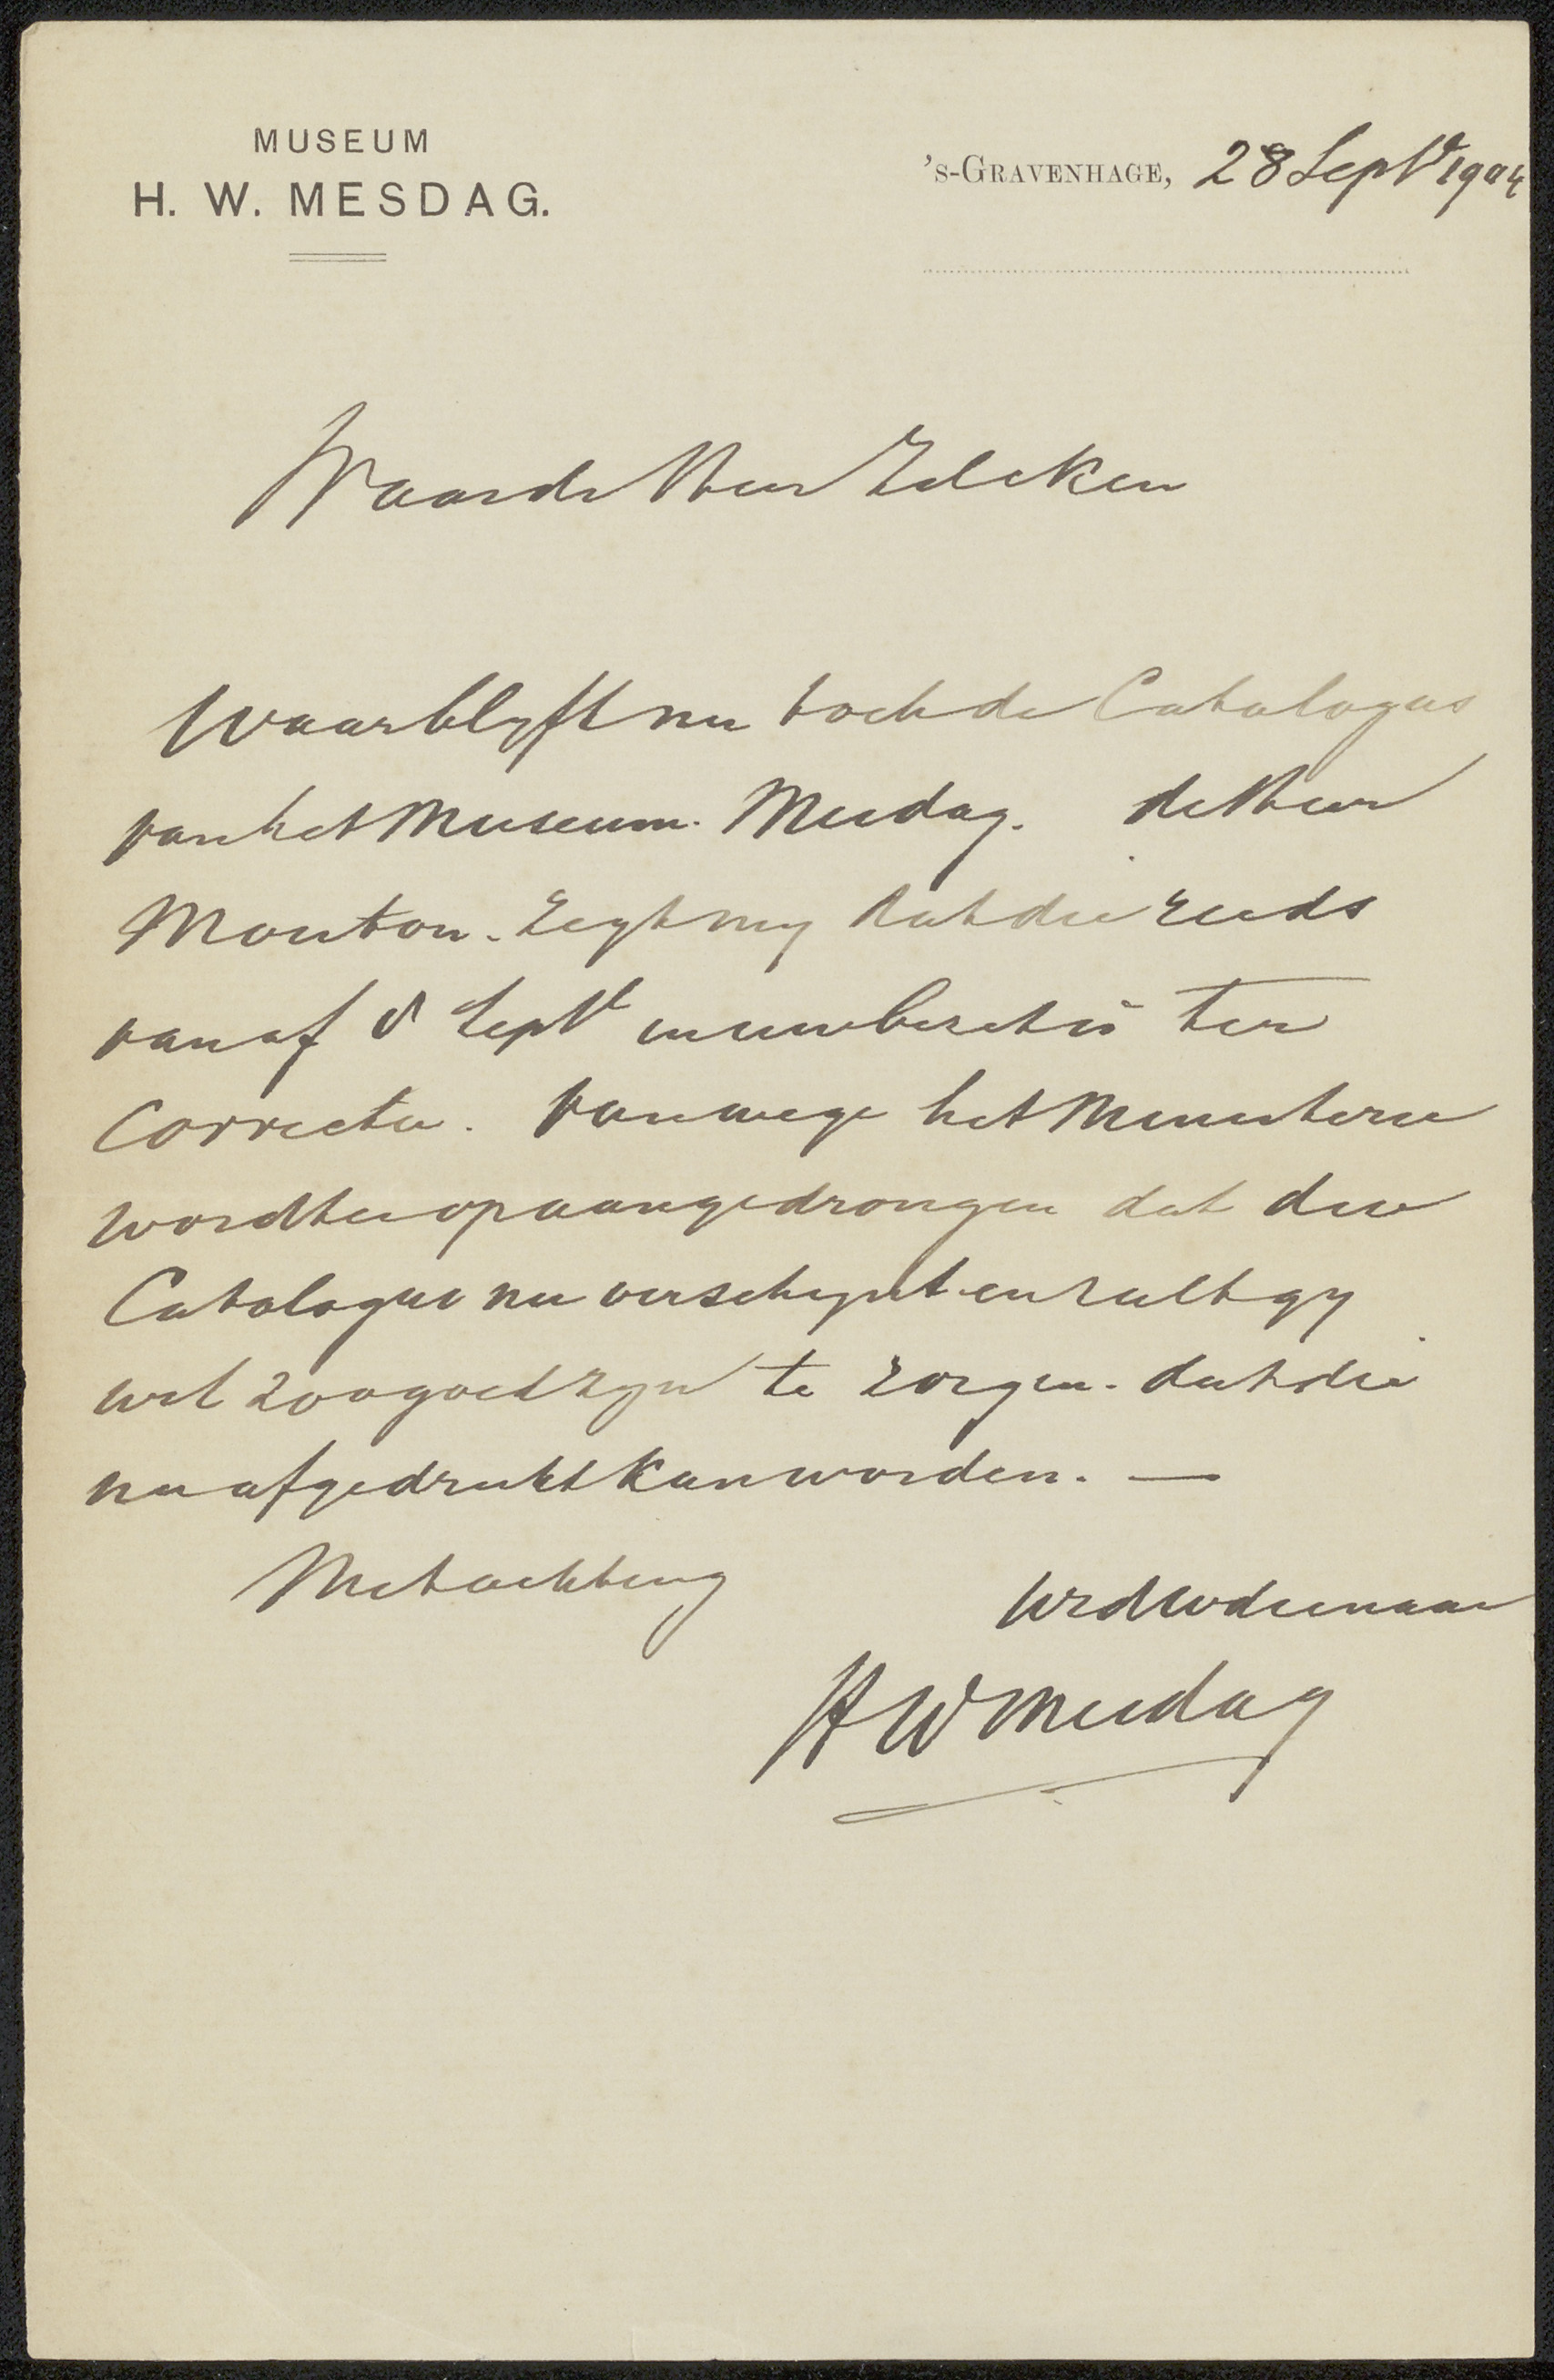 MUSEUM
H. W. MESDAG.
's-GRAVENHAGE, 28 Sept 1904
Waarde Heer Zilcken
Waar blyft nu toch de Catalogus
van het Museum. Mesdag. de Heer
Mouton. Zegt my dat die reeds
vanaf 8 Sept in uw bezit is ter
Correctie. Vanwege het Ministerie
wordt er op aangedrongen dat die
Catalogus nu verschynt en zult gy
wel zoo goed zyn te zorgen. dat die
nu afgedrukt kan worden. —
Met achting
Uw dw dienaar
HW Mesdag